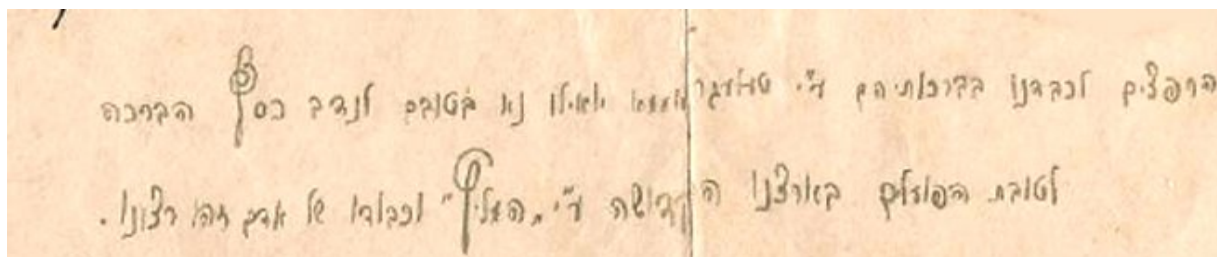 החפצים לכבדנו בברכותיהם ע״י טעלעגראמעס יואילו נא בטובם לנדב כסף הברכה
לטובת הפועלים בארצנו הקדושה ע״י „המליץ״ וכבודו של אדם זהו רצונו.